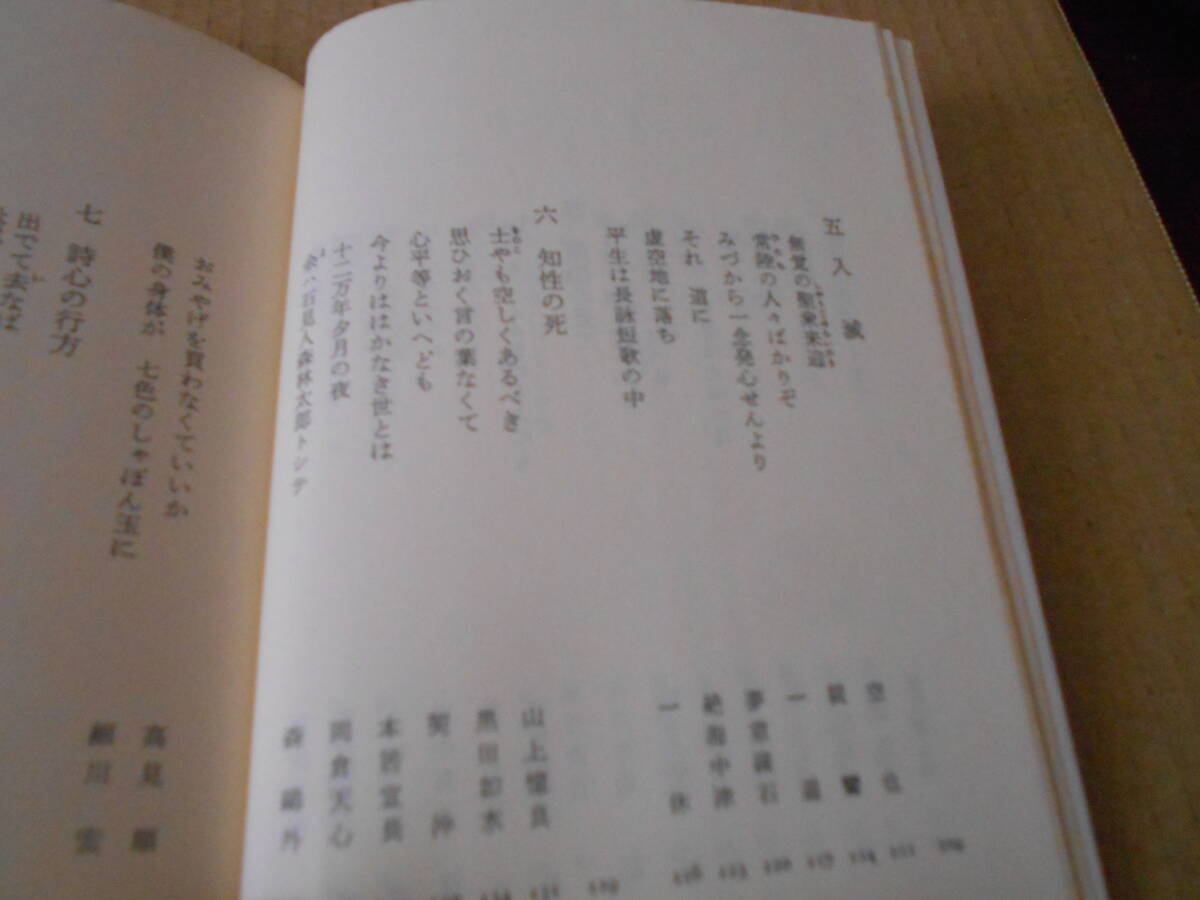 五 入 滅
無常の聖衆来迎
常陸の人々ばかりぞ
みづから一念発心せんより
それ 道に
虚空地に落ち
平生は長詠短歌の中
空 也
親 鸞
一 遍
夢窓疎石
絶海中津
一 休
109
111
114
117
120
123
126
六 知性の死
士やも空しくあるべき
思ひおく言の葉なくて
心平等といへども
今よりははかなき世とは
十二万年夕月の夜
余ハ石見人森林太郎トシテ
山上憶良
黒田如水
契 沖
本居宣長
岡倉天心
森 鷗外
129
131
134
おみやげを買わなくていいか
僕の身体が 七色のしゃぼん玉に
高見 順
細川 宏
七 詩心の行方
出でて去なば